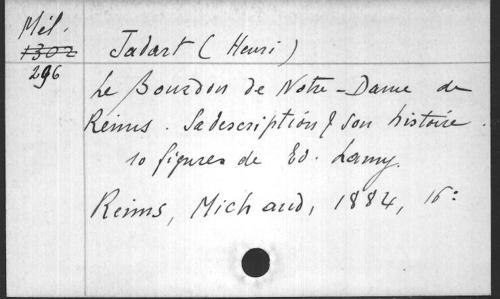 Mél.
1302
296
Jadart (Henri)
Le Bourdon de Notre-Dame de
Reims. Sa description & son histoire.
10 figures de Ed. Lamy.
Reims, Michaud, 1884, 16º